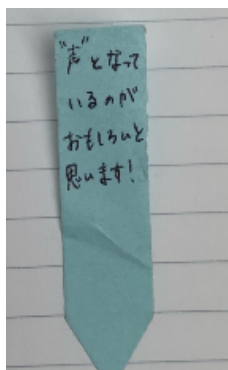 "声"となって
いるのが
おもしろいと
思います!